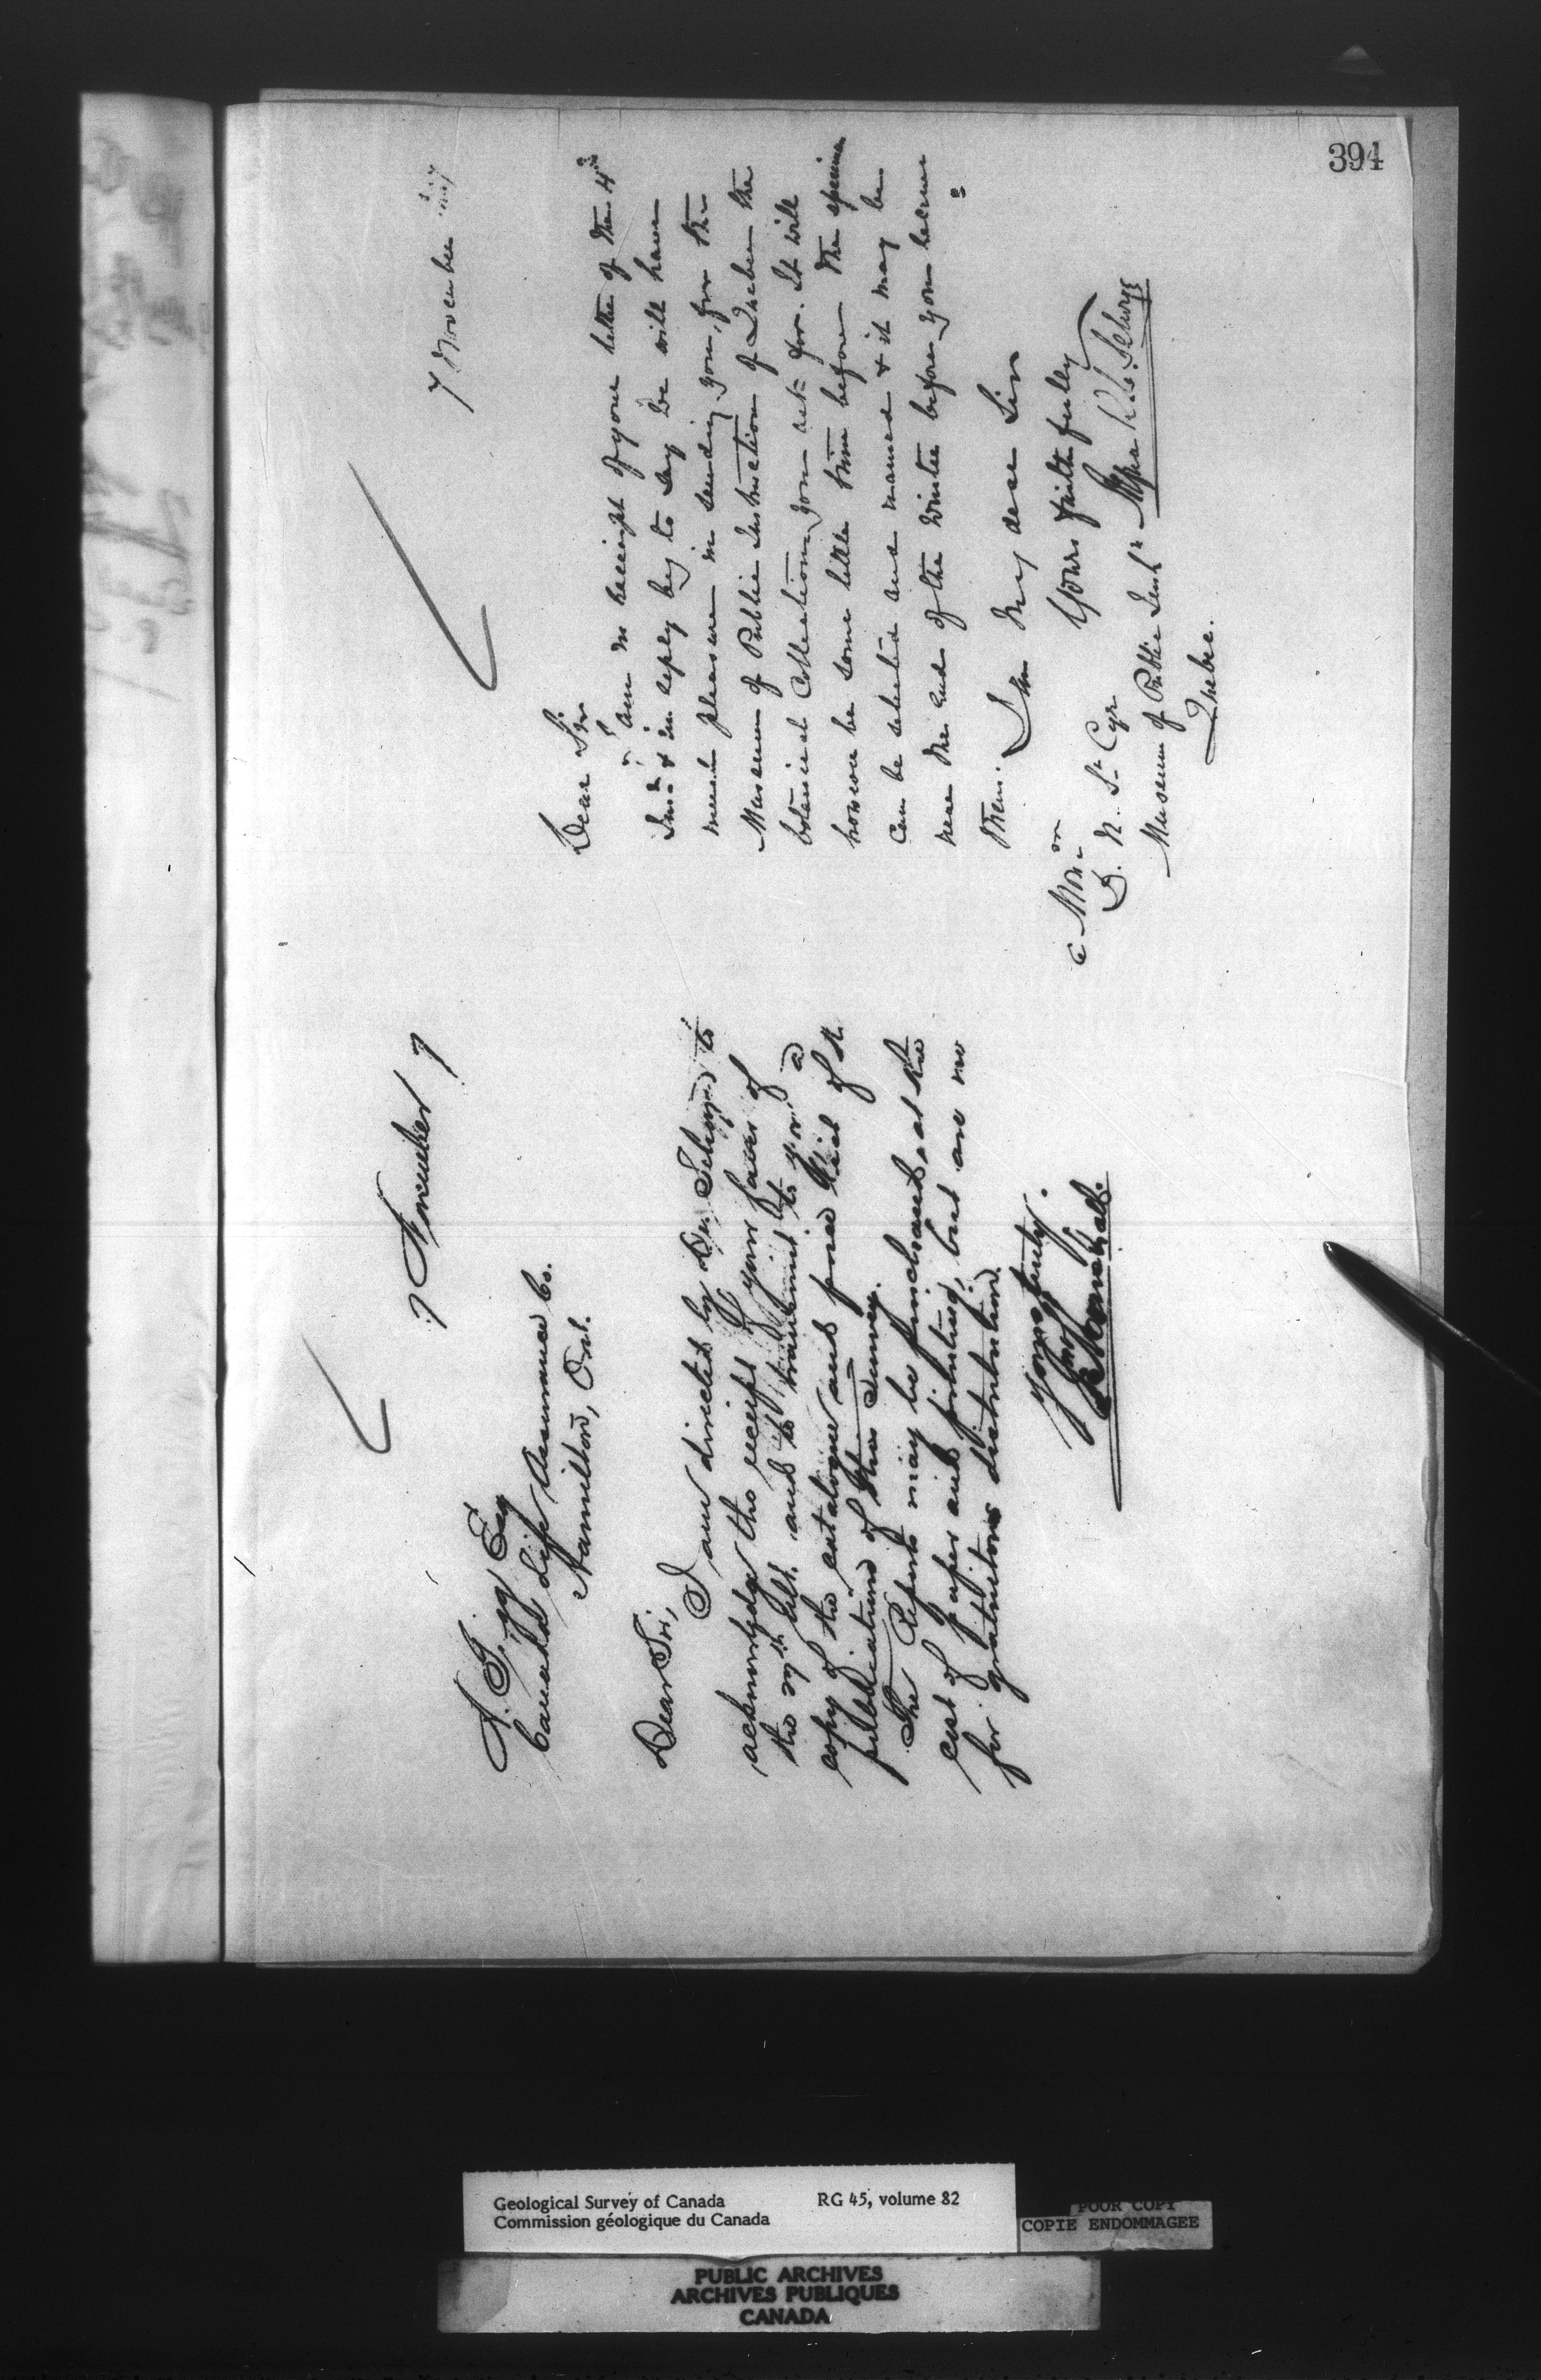 394
7 November
A. Gigg Esq
Canada Life Assurance Co.
Hamilton, Ont.
Dear Sir,
I am directed by Dr. Selwyn to
acknowledge the receipt of your favor of
the ult. and to transmit to you a
copy of the catalogue and price list of the
publications of this Survey.
The Reports may be purchased at the
cost of paper and printing, but are no
for gratuitous distribution.
Yours truly,
Jno Marshall.
7 November
Dear Sir
I am in receipt of your letter of the 4th
Inst & in reply beg to say we will have
much pleasure in sending you, for the
Museum of Public Instruction of Quebec the
botanical Collection you ask for. It will
however be some little time before the specimens
can be selected and named & it may be
near the end of the Winter before you receive
them.
I am my dear Sir
Yours faithfully
Alfred R. C. Selwyn
D. N. St Cyr
Museum of Public Inst
Quebec.
Geological Survey of Canada RG 45, volume 82
Commission géologique du Canada
POOR COPY
COPIE ENDOMMAGEE
PUBLIC ARCHIVES
ARCHIVES PUBLIQUES
CANADA